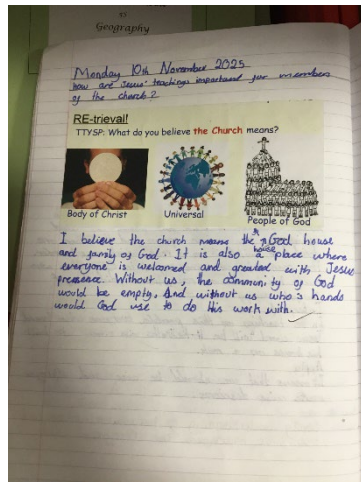 Geography
Monday 10th November 2025
how are Jesus' teachings important for members
of the church?
RE-trieval!
TTYSP: What do you believe the Church means?
Body of Christ
Universal
People of God
I believe the church means the God house
and family of God. It is also a place where
everyone is welcomed and greated with Jesus
presence. Without us, the community of God
would be empty. And without us who's hands
would God use to do His work with.